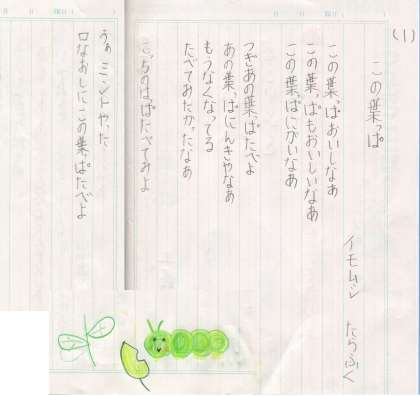 (1)
月 日 曜日( )
この葉っぱ
イモムシ たらふく
この葉っぱおいしなあ
この葉っぱもおいしいなあ
この葉っぱにがいなあ
つぎあの葉っぱたべよ
あの葉っぱにんきやなあ
もうなくなってる
たべてみたかったなあ
こっちのはっぱたべてみよ
月 日 曜日(
うぁ ミントやった
口なおしにこの葉っぱたべよ